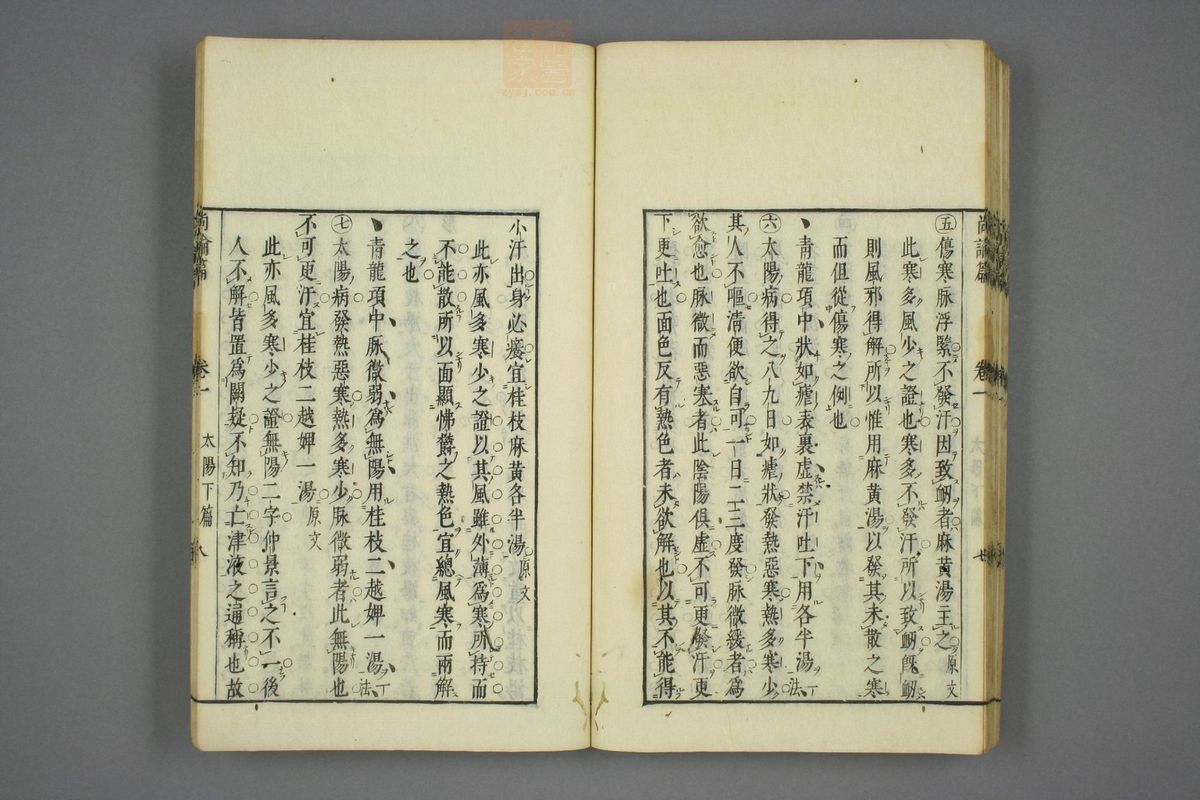 尚論篇 卷一
㊄傷寒脉浮緊不發汗因致衂者麻黄湯主之原文
此寒多風少之證也寒多不發汗所以致衂旣衂
則風邪得解所以惟用麻黄湯以發其未散之寒
而但從傷寒之例也
青龍項中狀如瘧表裏虛禁汗吐下用各半湯一法
㊅太陽病得之八九日如瘧狀發熱惡寒熱多寒少
其人不嘔淸便欲自可一日二三度發脉微緩者爲
欲愈也脉微而惡寒者此陰陽俱虛不可更發汗更
下更吐也面色反有熱色者未欲解也以其不能得
小汗出身必癢宜桂枝麻黄各半湯原文
此亦風多寒少之證以其風雖外薄爲寒所持而
不能散所以面顯怫鬱之熱色宜總風寒而兩解
之也
青龍項中脉微弱爲無陽用桂枝二越婢一湯一法
㊆太陽病發熱惡寒熱多寒少脉微弱者此無陽也
不可更汗宜桂枝二越婢一湯原文
此亦風多寒少之證無陽二字仲景言之不一後
人不解皆置爲闕疑不知乃亡津液之通稱也故
尚論篇 卷一 太陽下篇 八
zysj.com.cn